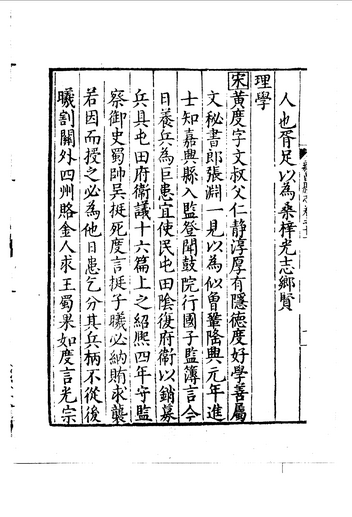 人也胥足以為桑梓光志鄉賢
理學
宋黃度字文叔父仁靜淳厚有隱德度好學善屬
文秘書郎張淵一見以為似曾鞏隆興元年進
士知嘉興縣入監登聞鼓院行國子監簿言今
日養兵為巨患宜使民屯田陰復府衛以銷募
兵具屯田府衛議十六篇上之紹熙四年守監
察御史蜀帥吳挺死度言挺子曦必納賄求襲
若因而授之必為他日患乞分其兵柄不從後
曦割關外四州賂金人求王蜀果如度言光宗